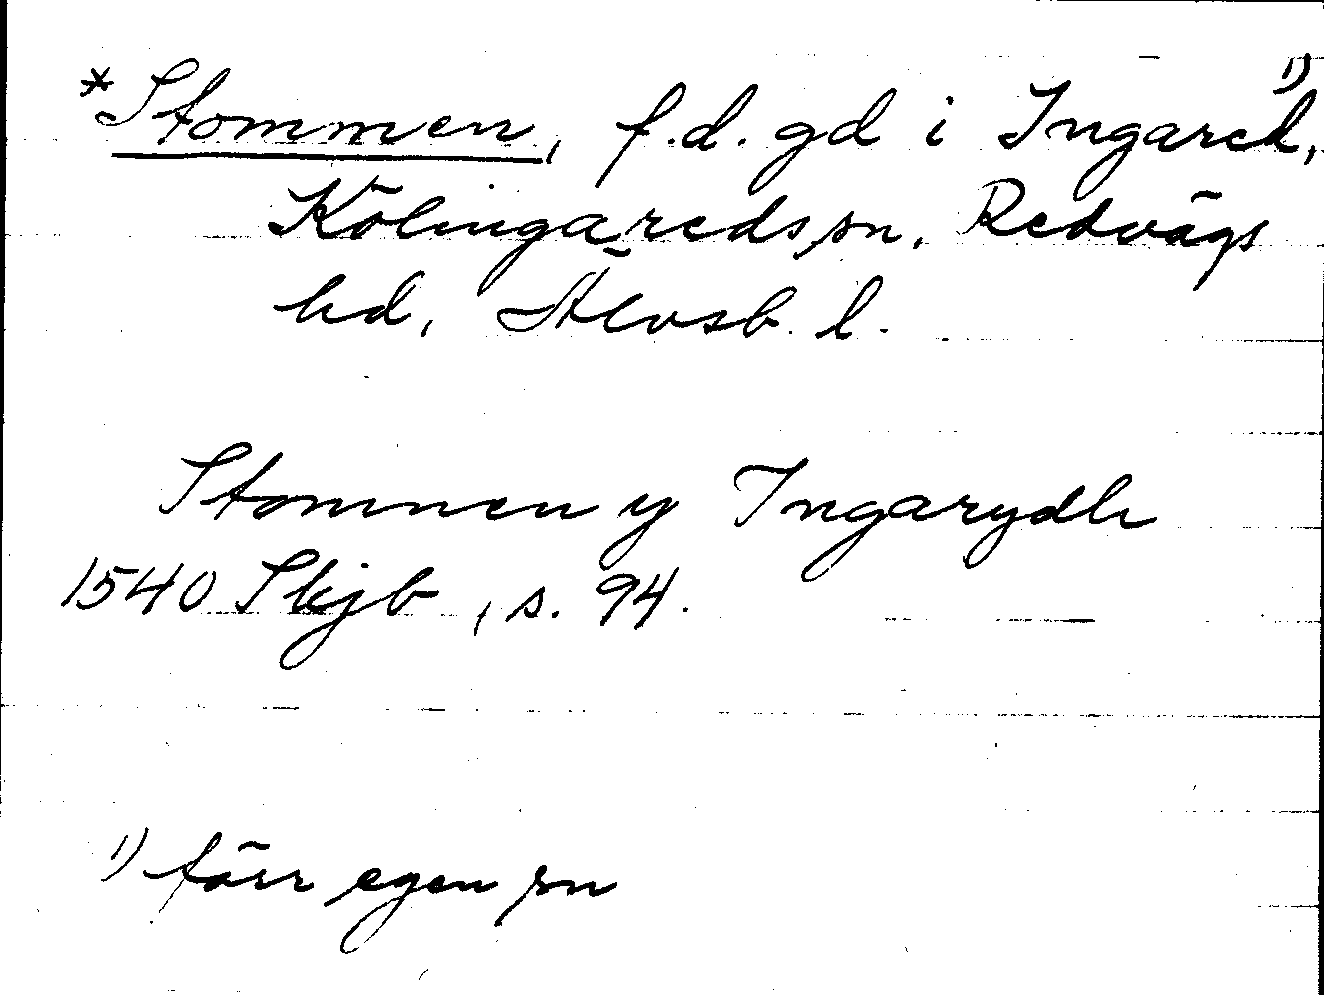 *Stommen, f.d. gd i Ingared¹⁾,
Kölingareds sn, Redvägs
hd, Älvsb. l.
Stomnen y Ingarydh
1540 Skjb, s. 94.
1) förr egen sn